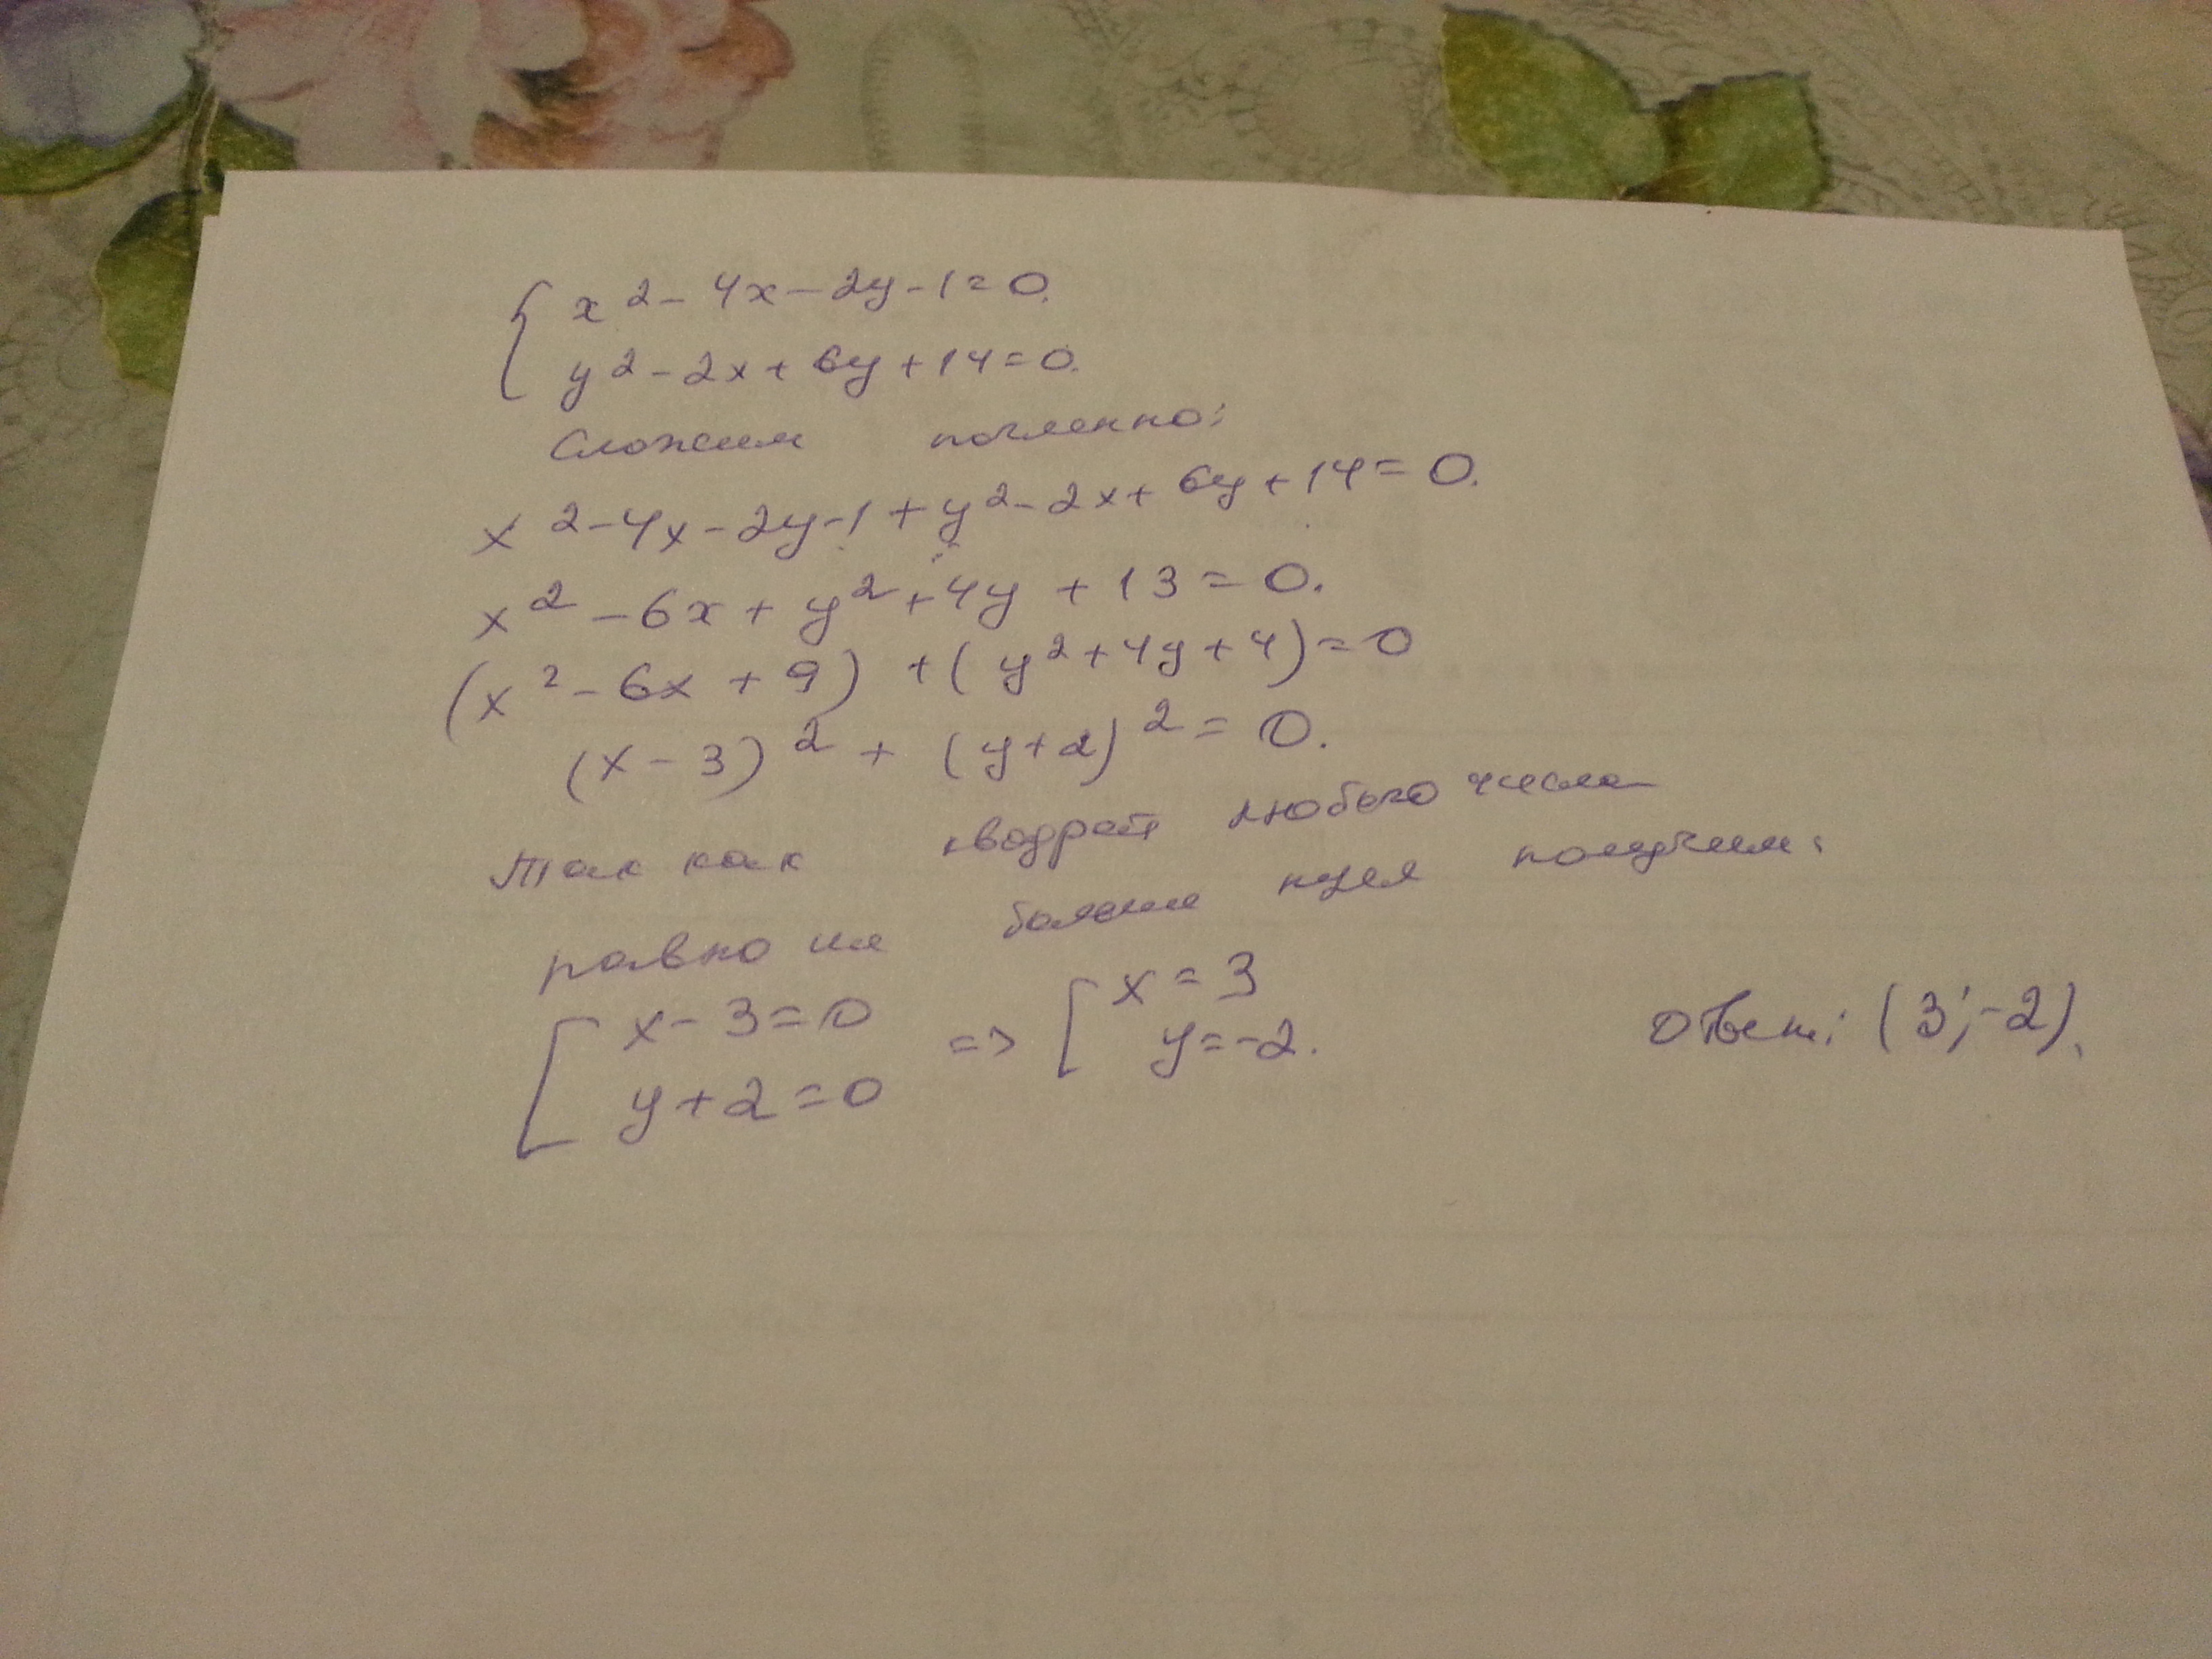 { x² - 4x - 2y - 1 = 0.
y² - 2x + 6y + 14 = 0.
Сложим почленно:
x² - 4x - 2y - 1 + y² - 2x + 6y + 14 = 0.
x² - 6x + y² + 4y + 13 = 0.
(x² - 6x + 9) + (y² + 4y + 4) = 0
(x - 3)² + (y + 2)² = 0.
Так как квадрат любого числа
равно или больше нуля получим:
[ x - 3 = 0 => [ x = 3
y + 2 = 0 y = -2.
Ответ: (3; -2).